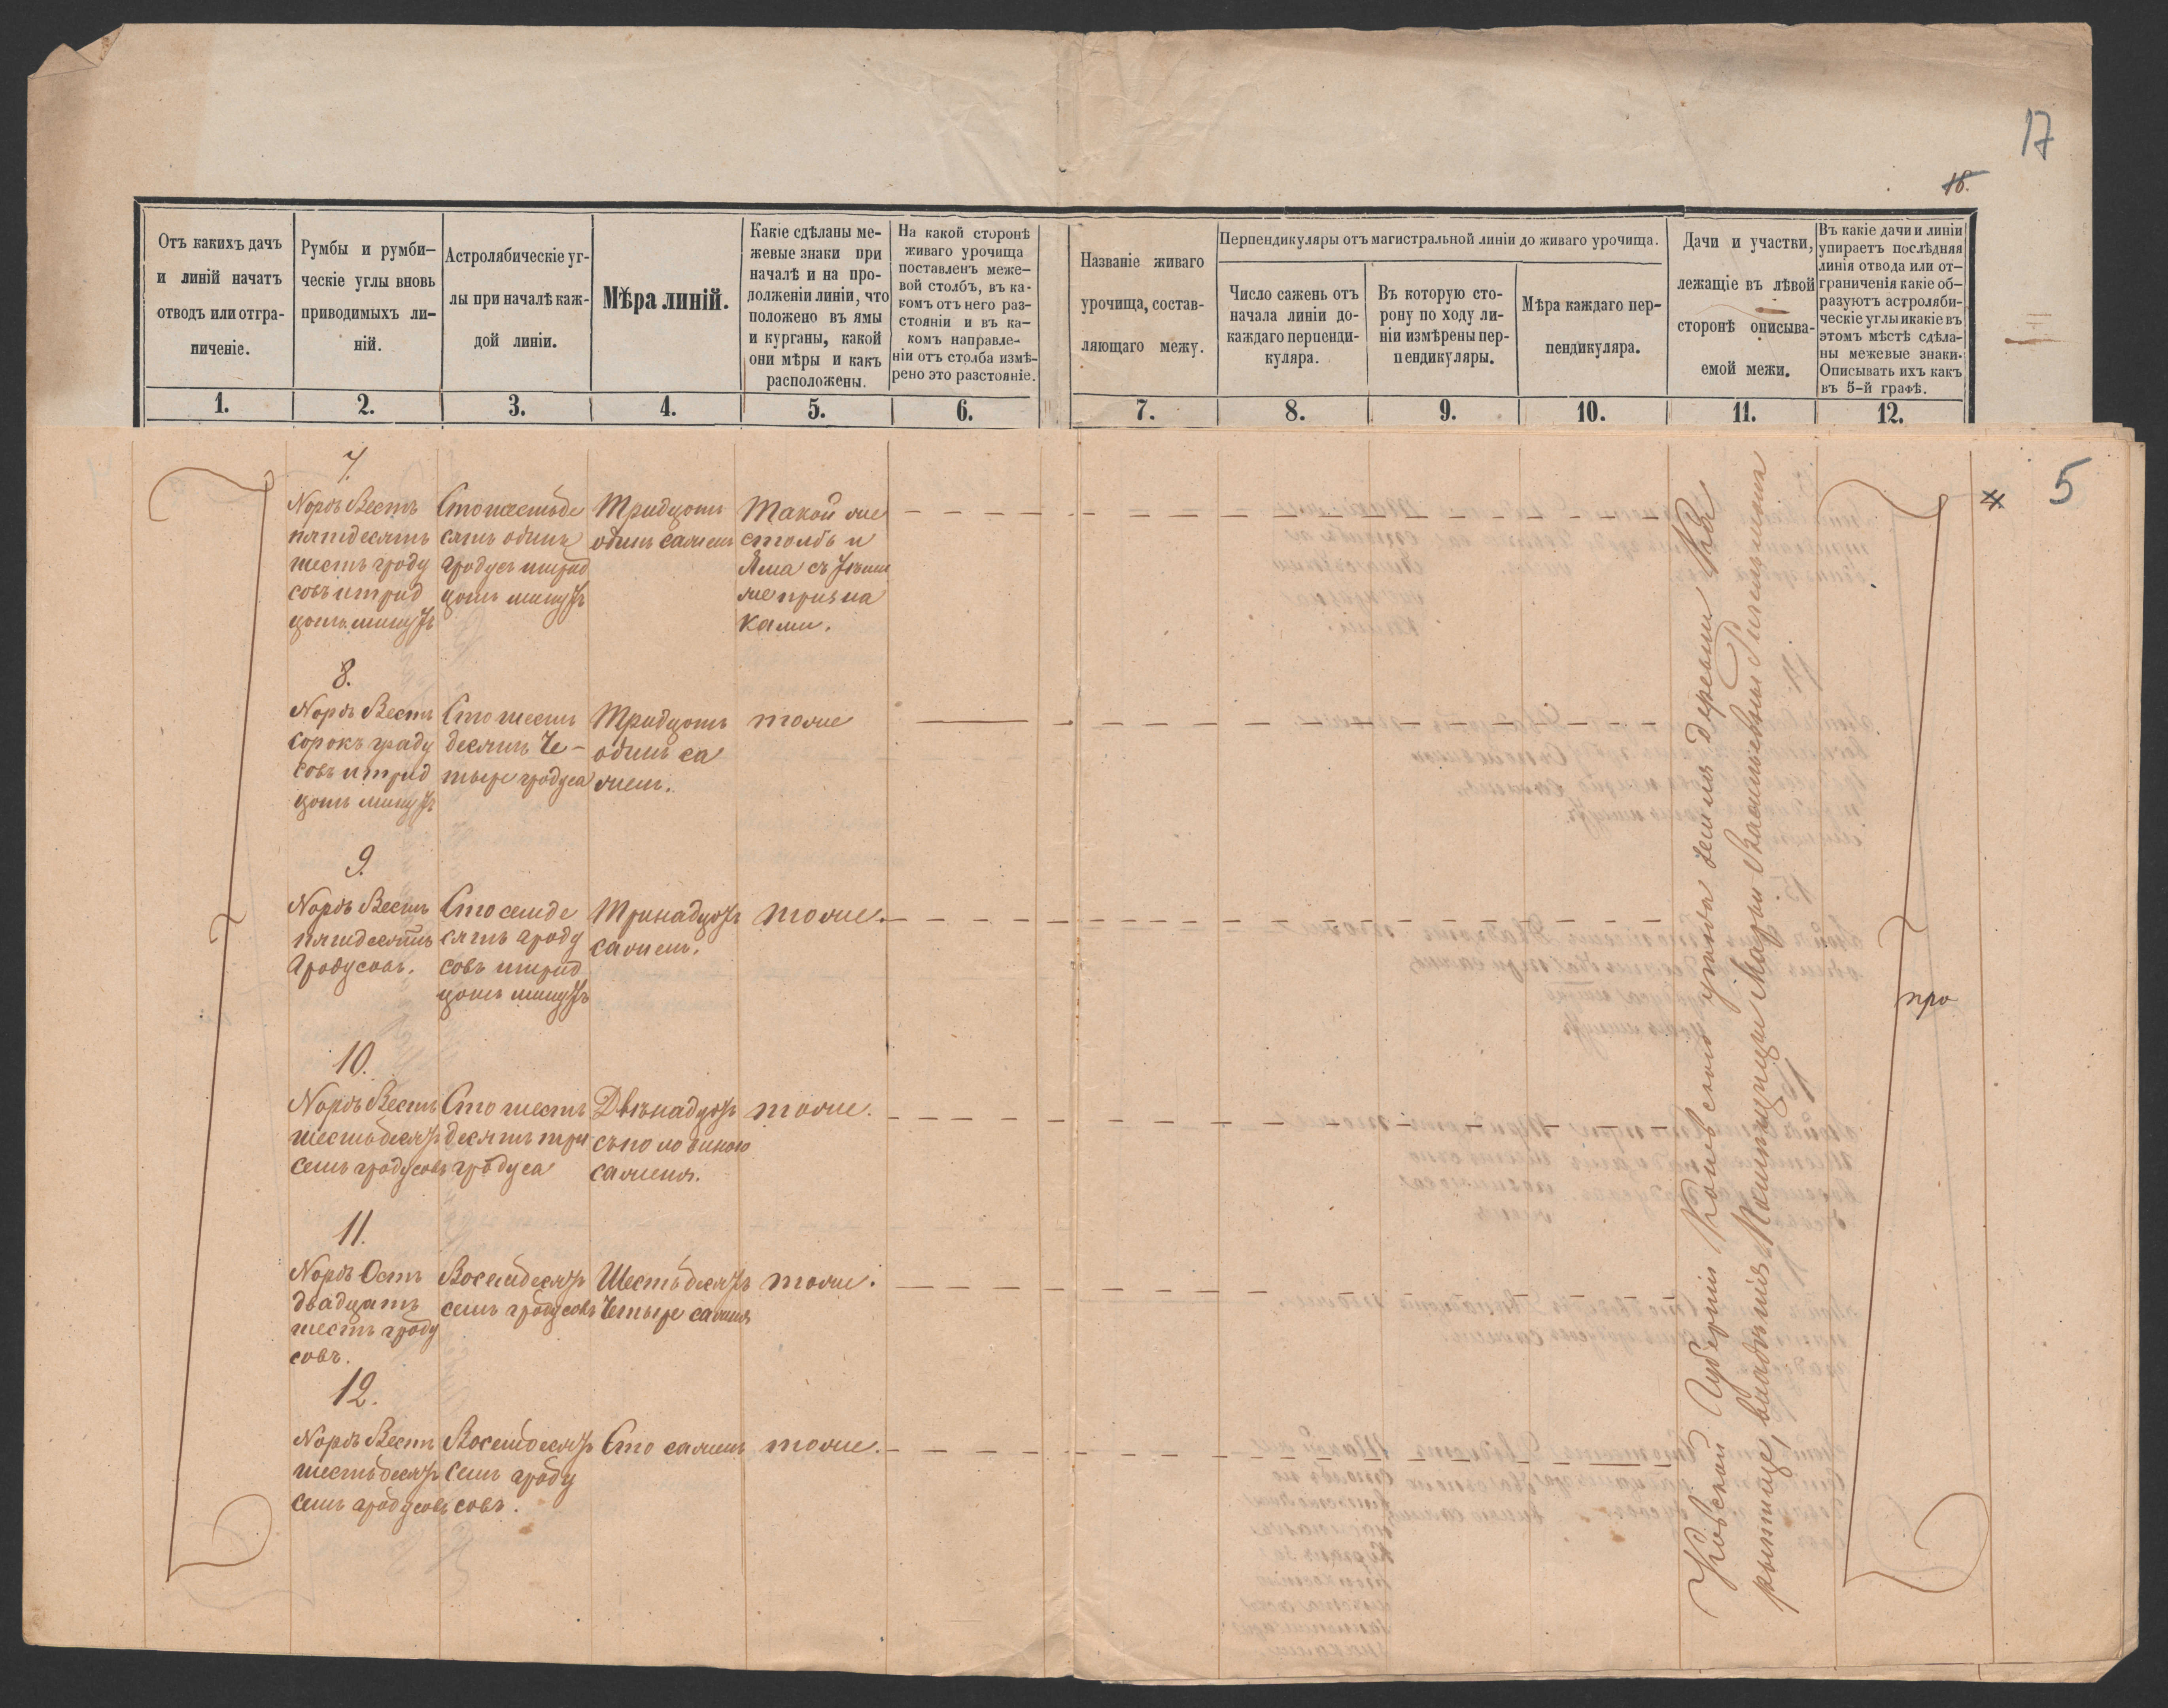 17
18.
Отъ какихъ дачъ
и линій начатъ
отводъ или отгра-
ниченіе.
Румбы и румби-
ческіе углы вновь
приводимыхъ ли-
ній.
Астролябическіе уг-
лы при началѣ каж-
дой линіи.
Мѣра линій.
Какіе сдѣланы ме-
жевые знаки при
началѣ и на про-
долженіи линіи, что
положено въ ямы
и курганы, какой
они мѣры и какъ
расположены.
На какой сторонѣ
живаго урочища
поставленъ меже-
вой столбъ, въ ка-
комъ отъ него раз-
стояніи и въ ка-
комъ направле-
ніи отъ столба измѣ-
рено это разстояніе.
Названіе живаго
урочища, состав-
ляющаго межу.
Перпендикуляры отъ магистральной линіи до живаго урочища.
Число сажень отъ
начала линіи до
каждаго перпенди-
куляра.
Въ которую сто-
рону по ходу ли-
ніи измѣрены пер-
пендикуляры.
Мѣра каждаго пер-
пендикуляра.
Дачи и участки,
лежащіе въ лѣвой
сторонѣ описыва-
емой межи.
Въ какіе дачи и линіи
упираетъ послѣдняя
линія отвода или от-
граниченія какіе об-
разуютъ астроляби-
ческіе углы и какіе въ
этомъ мѣстѣ сдѣла-
ны межевые знаки.
Описывать ихъ какъ
въ 5-й графѣ.
1. 2. 3. 4. 5. 6. 7. 8. 9. 10. 11. 12.
5
7.
Нордъ Вестъ
пятдесятъ
шесть граду
совъ и трид
цать минутъ
Сто шестьде
сятъ одинъ
градусъ и трид
цать минутъ
Тридцать
одинъ сажень
Такой же
столбъ и
Яма съ тѣми
же призна
ками.
8.
Нордъ Вестъ
сорокъ граду
совъ и трид
цать минутъ
Сто шесть
десятъ че-
тыре градуса
Тридцать
одинъ са
жень.
тоже
9.
Нордъ Вестъ
пятидесять
градусовъ.
Сто семде
сятъ граду
совъ и трид
цать минутъ
Тринадцать
сажень.
тоже.
10.
Нордъ Вестъ
шестьдесятъ
семь градусовъ
Сто шесть
десятъ три
градуса
Двѣнадцать
съ половиною
саженя.
тоже.
11.
Нордъ Остъ
двадцать
шесть граду
совъ.
Восемдесятъ
семь градусовъ
Шестьдесятъ
четыре саженя
тоже.
12.
Нордъ Вестъ
шестьдесятъ
семь градусовъ
Восемдесятъ
семь граду
совъ.
Сто сажень
тоже.
Кіевской Губерніи Каневскаго уѣзда земля деревни Ква
рытище, владѣнія Помѣщицы Маріи
про